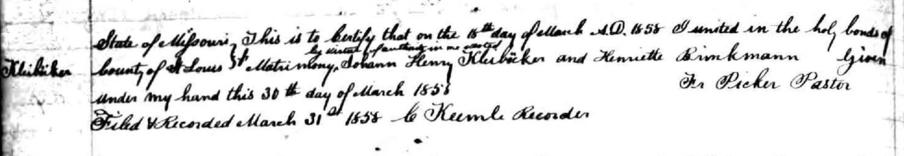 State of Missouri, This is to Certify that on the 18th day of March A.D. 1858 I united in the holy bonds of
by virtue of authority in me vested
Kleiböker County of St Louis } Matrimony, Johann Henry Kleiböcker and Henriette Brinkmann Given
under my hand this 30th day of March 1858 Fr Picker Pastor
Filed & Recorded March 31st 1858 C Keemle Recorder